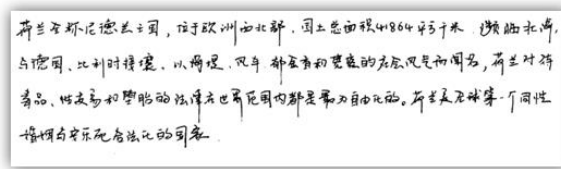 荷兰全称尼德兰王国，位于欧洲西北部，国土总面积41864平方千米，濒临北海，
与德国、比利时接壤。以海堤、风车、郁金香和宽容的社会风气而闻名，荷兰对待
毒品、性交易和堕胎的法律在世界范围内都是最为自由化的。荷兰是全球第一个同性
婚姻与安乐死合法化的国家